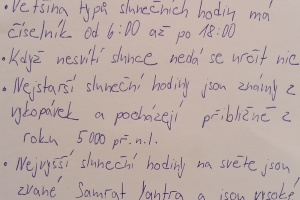 • Většina typů slunečních hodin má
číselník od 6:00 až po 18:00
• Když nesvítí slunce nedá se určit nic
• Nejstarší sluneční hodiny jsou známy z
vykopávek a pocházejí přibližně z
roku 5 000 př. n. l.
• Nejvyšší sluneční hodiny na světe jsou
zvané Samrat Yantra a jsou vysoké